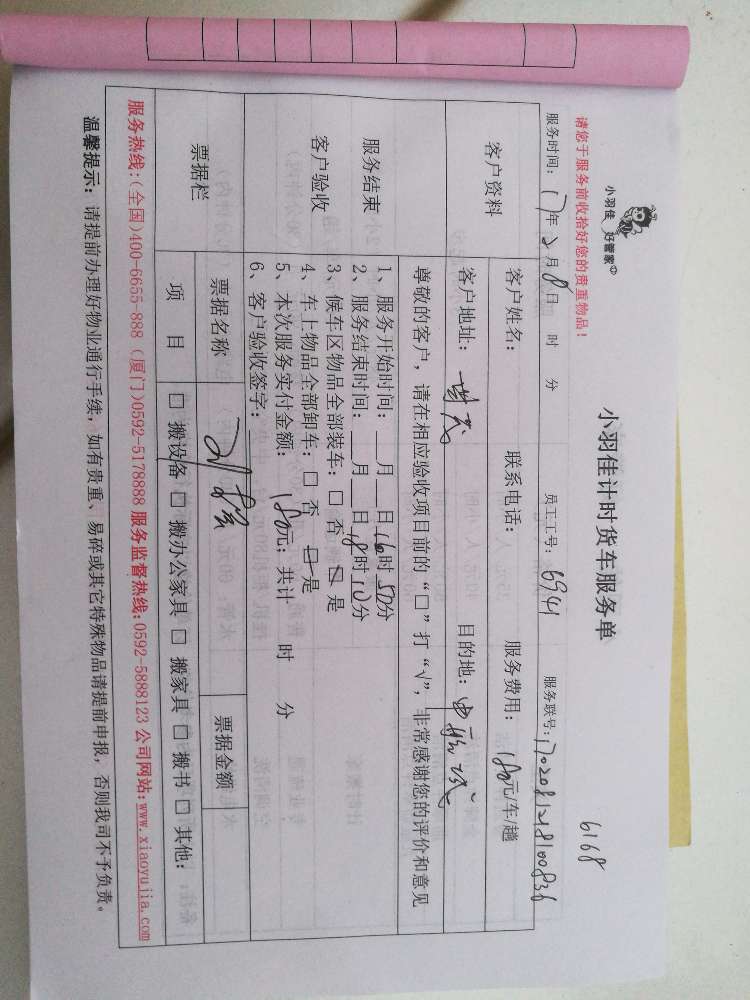 小羽佳 好管家
小羽佳计时货车服务单
6168
请您于服务前收拾好您的贵重物品！
服务时间：17年2月8日 时 分 员工工号：6941 服务联号：1702081218100836
客户资料
客户姓名： 联系电话： 服务费用：180元/车/趟
客户地址： 目的地：
尊敬的客户，请在相应验收项目前的“□”打“√”，非常感谢您的评价和意见
服务结束
客户验收
1、服务开始时间：__月__日16时50分
2、服务结束时间：__月__日18时10分
3、候车区物品全部装车：□ 否 □ 是
4、车上物品全部卸车：□ 否 □ 是
5、本次服务实付金额：180元；共计 时 分
6、客户验收签字：
票据栏
票据名称 票据金额
项 目 □ 搬设备 □ 搬办公家具 □ 搬家具 □ 搬书 □ 其他：
服务热线：(全国)400-6655-888 (厦门)0592-5178888 服务监督热线：0592-5888123 公司网站：www.xiaoyujia.com
温馨提示：请提前办理好物业通行手续，如有贵重、易碎或其它特殊物品请提前申报，否则我司不予负责。